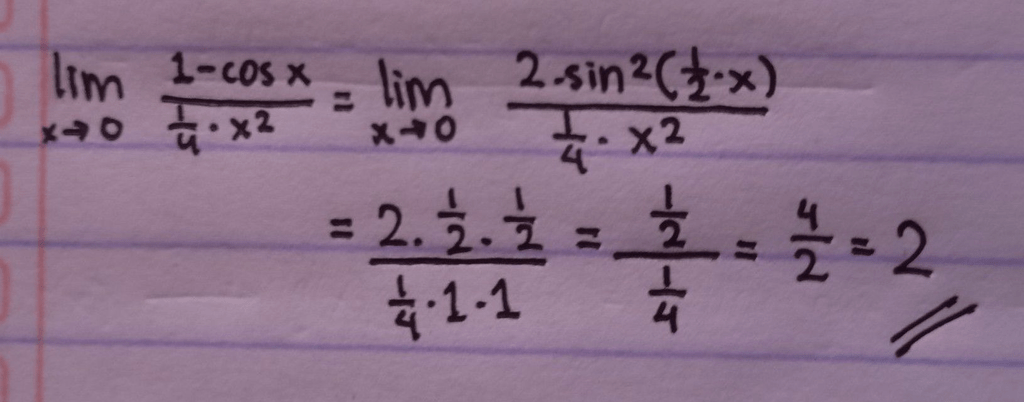 lim x→0 (1-cos x)/(1/4 · x²) = lim x→0 (2·sin²(1/2·x))/(1/4 · x²)
= (2·1/2·1/2)/(1/4·1·1) = (1/2)/(1/4) = 4/2 = 2